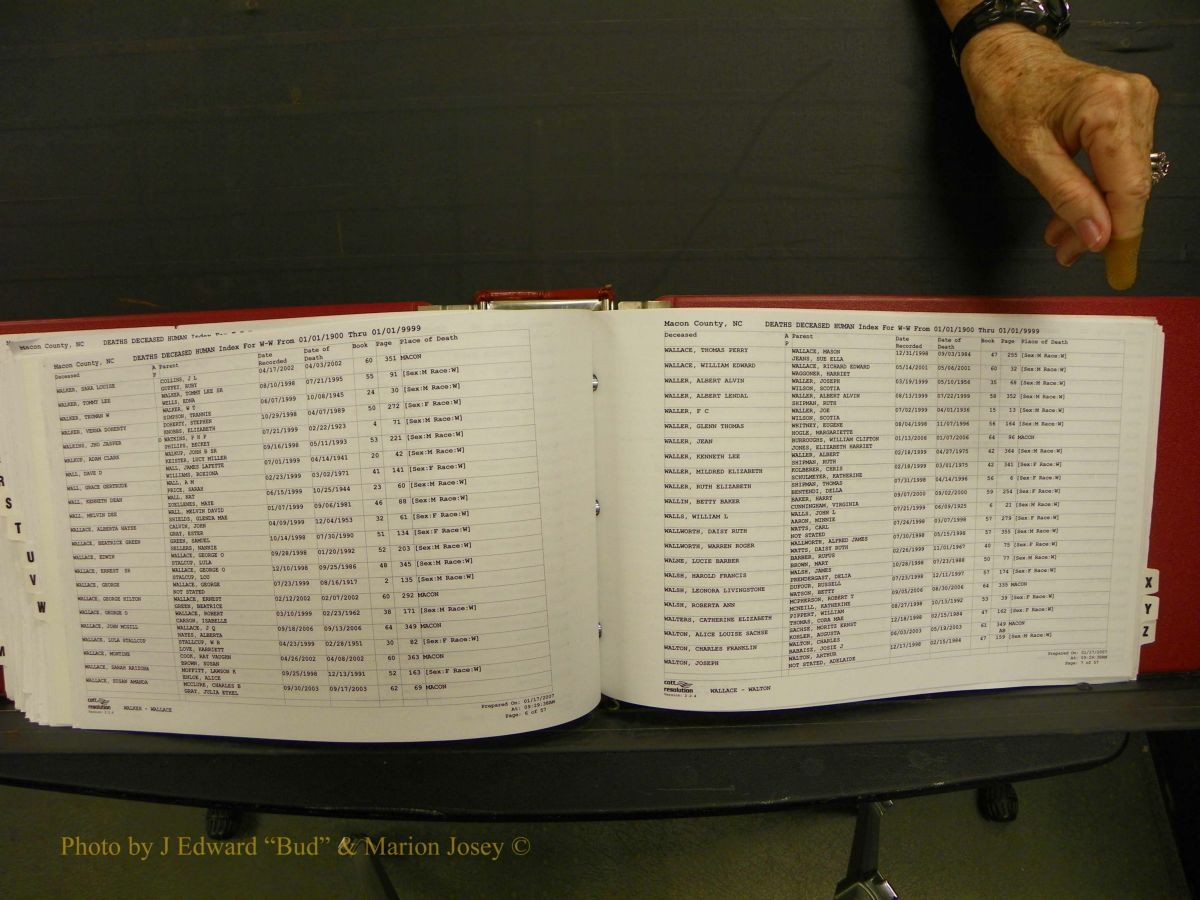 Macon County, NC DEATHS DECEASED HUMAN Index For
Macon County, NC DEATHS DECEASED HUMAN Index For W-W From 01/01/1900 Thru 01/01/9999
Deceased A Parent Date Recorded Date of Death Book Page Place of Death
P
WALKER, SARA LOUISE COLLINS, J L 04/17/2002 04/03/2002 60 351 MACON
GUFFEY, RUBY
WALKER, TOMMY LEE WALKER, TOMMY LEE SR 08/10/1998 07/21/1995 55 91 [Sex:M Race:W]
WELLS, EDNA
WALKER, TRUMAN W WALKER, W T 06/07/1999 10/08/1945 24 30 [Sex:M Race:W]
SIMPSON, TRANNIE
WALKER, VERNA DOHERTY DOHERTY, STEPHEN 10/29/1998 04/07/1989 50 272 [Sex:F Race:W]
KNOBBS, ELIZABETH
WATKINS, JNO JASPER D WATKINS, P H P 07/21/1999 02/22/1923 4 71 [Sex:M Race:W]
PHILIPS, BECKEY
WALKUP, ADAM CLARK WALKUP, JOHN B SR 09/16/1998 05/11/1993 53 221 [Sex:M Race:W]
KEISTER, LUCY MILLER
WALL, DAVE D WALL, JAMES LAFETTE 07/01/1999 04/14/1941 20 42 [Sex:M Race:W]
WILLIAMS, ROXIONA
WALL, GRACE GERTRUDE WALL, A M 02/23/1999 03/02/1971 41 141 [Sex:F Race:W]
PRICE, SARAH
WALL, KENNETH DEAN WALL, NAT 06/15/1999 10/25/1944 23 60 [Sex:M Race:W]
WALL, MELVIN DEE WALL, MELVIN DAVID 01/07/1999 09/06/1981 46 88 [Sex:M Race:W]
SHIELDS, GLENDA MAE
WALLACE, ALBERTA HAYSE CALVIN, JOHN 04/09/1999 12/04/1953 32 61 [Sex:F Race:W]
GRAY, ESTER
WALLACE, BEATRICE GREEN GREEN, SAMUEL 10/14/1998 07/30/1990 51 134 [Sex:F Race:W]
SELLERS, NANNIE
WALLACE, EDWIN WALLACE, GEORGE O 09/28/1998 01/20/1992 52 203 [Sex:M Race:W]
STALCUP, LULA
WALLACE, ERNEST SR WALLACE, GEORGE O 12/10/1998 09/25/1986 48 345 [Sex:M Race:W]
STALCUP, LOU
WALLACE, GEORGE WALLACE, GEORGE 07/23/1999 08/16/1917 2 135 [Sex:M Race:W]
WALLACE, GEORGE HILTON WALLACE, ERNEST 02/12/2002 02/07/2002 60 292 MACON
GREEN, BEATRICE
WALLACE, GEORGE O WALLACE, ROBERT 03/10/1999 02/23/1962 38 171 [Sex:M Race:W]
CARSON, ISABELLE
WALLACE, JOHN MCGILL WALLACE, J Q 09/18/2006 09/13/2006 64 349 MACON
HAYES, ALBERTA
WALLACE, LULA STALLCUP STALLCUP, W R 04/23/1999 02/28/1951 30 82 [Sex:F Race:W]
LOVE, HARRIETT
WALLACE, MORTINE COOK, RAY VAUGHN 04/26/2002 04/08/2002 60 363 MACON
BROWN, SUSAN
WALLACE, SARAH MOFFITT, LAWSON K 09/25/1998 12/13/1991 52 163 [Sex:F Race:W]
ENLOE, ALICE
WALLACE, SUSAN AMANDA MCCLURE, CHARLES B 09/30/2003 09/17/2003 62 69 MACON
GRAY, JULIA ETHEL
cott resolution WALKER - WALLACE
Prepared On: 01/17/2007
At: 09:29:38AM
Page: 6 of 57
Macon County, NC DEATHS DECEASED HUMAN Index For W-W From 01/01/1900 Thru 01/01/9999
Deceased A Parent Date Recorded Date of Death Book Page Place of Death
P
WALLACE, THOMAS PERRY WALLACE, MASON 12/31/1998 09/03/1984 47 255 [Sex:M Race:W]
JEANS, SUE ELLA
WALLACE, WILLIAM EDWARD WALLACE, RICHARD EDWARD 05/14/2001 05/06/2001 60 32 [Sex:M Race:W]
WAGGONER, HARRIET
WALLER, ALBERT ALVIN WALLER, JOSEPH 03/19/1999 05/10/1956 35 68 [Sex:M Race:W]
WILSON, SCOTIA
WALLER, ALBERT LENDAL WALLER, ALBERT ALVIN 08/13/1999 07/22/1999 58 352 [Sex:M Race:W]
SHIPMAN, RUTH
WALLER, F C WALLER, JOE 07/02/1999 04/01/1936 15 13 [Sex:M Race:W]
WILSON, SCOTIA
WALLER, GLENN THOMAS WHITNEY, EUGENE 08/04/1998 11/07/1996 56 164 [Sex:M Race:W]
HOGLE, MARGARIETTE
WALLER, JEAN BURROUGHS, WILLIAM CLIFTON 01/13/2006 01/07/2006 64 96 MACON
JONES, ELIZABETH HARRIET
WALLER, KENNETH LEE WALLER, ALBERT 02/18/1999 04/27/1975 42 364 [Sex:M Race:W]
SHIPMAN, RUTH
WALLER, MILDRED ELIZABETH KOLBERER, CHRIS 02/18/1999 03/01/1975 42 341 [Sex:F Race:W]
SCHULMEYER, KATHERINE
WALLER, RUTH ELIZABETH SHIPMAN, THOMAS 07/31/1998 04/14/1996 56 6 [Sex:F Race:W]
BENTENDI, DELLA
WALLIN, BETTY BAKER BAKER, HARRY 09/07/2000 09/02/2000 59 254 [Sex:F Race:W]
CUNNINGHAM, VIRGINIA
WALLS, WILLIAM L WALLS, JOHN L 07/21/1999 06/09/1925 6 21 [Sex:M Race:W]
AARON, MINNIE
WALLWORTH, DAISY RUTH WATTS, CARL 07/24/1998 03/07/1998 57 279 [Sex:F Race:W]
NOT STATED
WALLWORTH, WARREN ROGER WALLWORTH, ALFRED JAMES 07/30/1998 05/15/1998 57 355 [Sex:M Race:W]
WATTS, DAISY RUTH
WALME, LUCIE BARBER BARBER, RUFUS 02/26/1999 11/01/1967 40 75 [Sex:F Race:W]
BROWN, MARY
WALSH, HAROLD FRANCIS WALSH, JAMES 10/28/1998 07/23/1988 50 77 [Sex:M Race:W]
PRENDERGAST, DELIA
WALSH, LEONORA LIVINGSTONE DUFOUR, RUSSELL 07/23/1998 12/11/1997 57 174 [Sex:F Race:W]
WATSON, BETTY
WALSH, ROBERTA ANN MCPHERSON, ROBERT T 09/05/2006 08/30/2006 64 335 MACON
MCNEILL, KATHERINE
WALTERS, CATHERINE ELIZABETH PIPPERT, WILLIAM 08/27/1998 10/13/1992 53 39 [Sex:F Race:W]
THOMAS, CORA MAE
WALTON, ALICE LOUISE SACHSE SACHSE, MORITZ ERNST 12/18/1998 02/15/1984 47 162 [Sex:F Race:W]
KOHLER, AUGUSTA
WALTON, CHARLES FRANKLIN WALTON, CHARLES 06/03/2003 05/19/2003 61 349 MACON
BABAISZ, JOSIE J AB
WALTON, JOSEPH WALTON, ARTHUR 12/17/1998 02/15/1984 47 159 [Sex:M Race:W]
NOT STATED, ADELAIDE
cott resolution WALLACE - WALTON
Prepared On: 01/17/2007
At: 09:29:38AM
Page: 7 of 57
R
S
T
U
V
W
M
X
Y
Z
Photo by J Edward “Bud” & Marion Josey ©